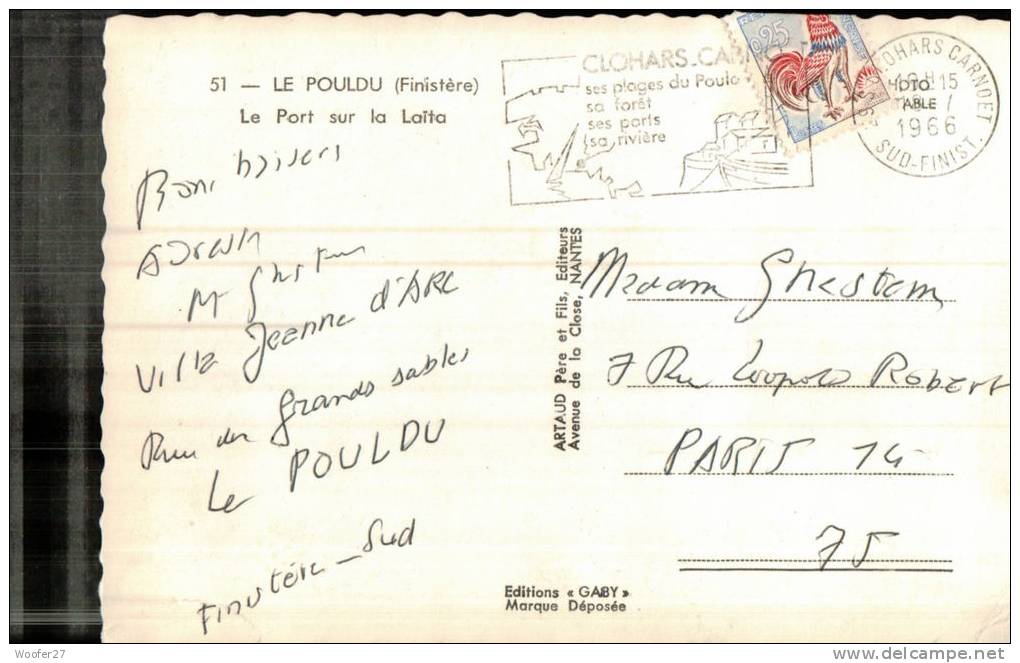 51 — LE POULDU (Finistère)
Le Port sur la Laïta
CLOHARS-CAR
ses plages du Pouldu
sa forêt
ses ports
sa rivière
0,25
CLOHARS CARNOET
18 H 15
1966
SUD-FINIST.
Bons baisers
M Ghestem
Villa Jeanne d'ARC
Rue des grands sables
Le POULDU
Finistère - Sud
ARTAUD Père et Fils, Editeurs
Avenue de la Close, NANTES
Madam Ghestem
7 Rue Leopold Robert
PARIS 14
75
Editions « GABY »
Marque Déposée
Woofer27
www.delcampe.net